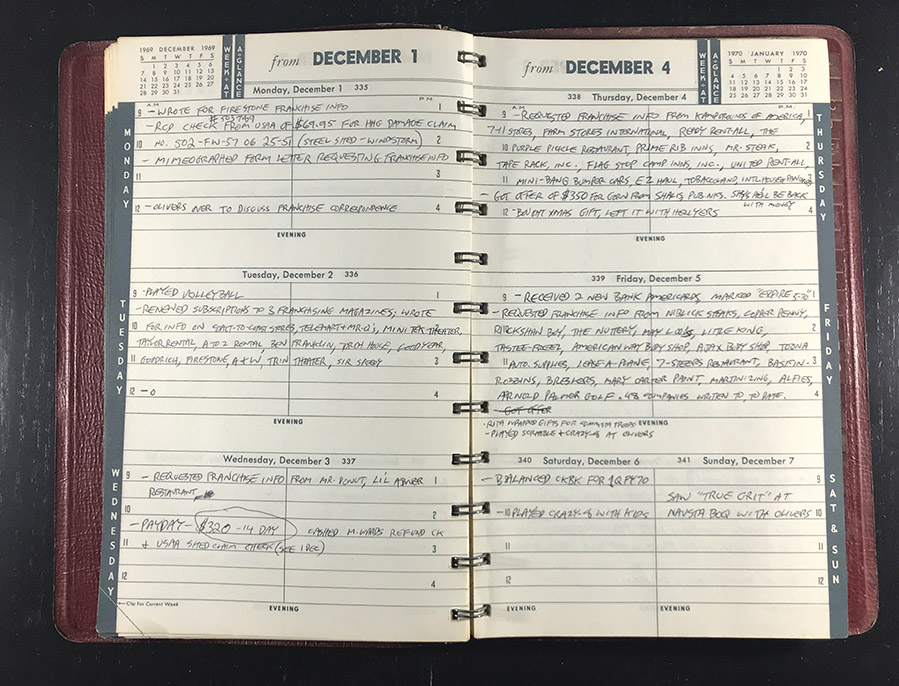 1969 DECEMBER 1969
S M T W T F S
1 2 3 4 5 6
7 8 9 10 11 12 13
14 15 16 17 18 19 20
21 22 23 24 25 26 27
28 29 30 31
WEEK-AT
A-GLANCE
from DECEMBER 1
Monday, December 1 335
MONDAY
A M P M
9 - WROTE FOR FIRESTONE FRANCHISE INFO 1
- RCD CHECK FROM USAA OF $69.95 FOR HHG DAMAGE CLAIM
10 NO. 502-FW-57 06 25-51 (STEEL SHED - WINDSTORM) 2
- MIMEOGRAPHED FORM LETTER REQUESTING FRANCHISE INFO
11 3
12 - OLIVERS OVER TO DISCUSS FRANCHISE CORRESPONDENCE 4
EVENING
Tuesday, December 2 336
TUESDAY
9 - PLAYED VOLLEYBALL 1
- RENEWED SUBSCRIPTIONS TO 3 FRANCHISING MAGAZINES, WROTE
10 FOR INFO ON MR. Q'S, MINI THEATER, 2
TAYLOR RENTAL, A TO Z RENTAL, BEN FRANKLIN, HOUSE, GOODYEAR,
11 GOODRICH, FIRESTONE, A+W, THEATER, SIR SPEEDY 3
12 - 0 4
EVENING
Wednesday, December 3 337
WEDNESDAY
9 - REQUESTED FRANCHISE INFO FROM MR. DONUT, LI'L ABNER 1
RESTAURANT
10 2
- PAYDAY - $320 - 14 DAY CASHED M. WARDS REFUND CK
11 + USAA SHED CLAIM CHECK (SEE 1 DEC) 3
12 4
Clip For Current Week
EVENING
from DECEMBER 4
WEEK-AT
A-GLANCE
1970 JANUARY 1970
S M T W T F S
1 2 3
4 5 6 7 8 9 10
11 12 13 14 15 16 17
18 19 20 21 22 23 24
25 26 27 28 29 30 31
338 Thursday, December 4
THURSDAY
A M P M
9 - REQUESTED FRANCHISE INFO FROM KAMPGROUNDS OF AMERICA, 1
7-11 STORES, FARM STORES INTERNATIONAL, READY RENT-ALL, THE
10 PURPLE PICKLE RESTAURANT, PRIME RIB INNS, MR. STEAK, 2
TAPE RACK, INC., FLAG STOP CAMP INNS, INC., UNITED RENT-ALL,
11 MINI-BANG BUMPER CARS, EZ HAUL, TOBACCOLAND, INTL. HOUSE OF PANCAKES 3
- GOT OFFER OF $350 FOR CORN FROM PUB NKS. SAYS HE'LL BE BACK
WITH MONEY
12 - BOUGHT XMAS GIFT, LEFT IT WITH HELLYERS 4
EVENING
339 Friday, December 5
FRIDAY
9 - RECEIVED 2 NEW BANK AMERICARDS, MARKED "EXPIRE 5-70" 1
- REQUESTED FRANCHISE INFO FROM NIBLICK STEAKS, COPPER PENNY,
10 RICKSHAW BOY, THE NUTTERY, LITTLE KING, 2
TASTEE-FREEZ, AMERICAN WAY BODY SHOP, AJAX BODY SHOP,
11 AUTO SUPPLIES, LEASE-A-PLANE, 7-STEERS RESTAURANT, BASKIN- 3
ROBBINS, BRESLERS, MARY CARTER PAINT, MARTINIZING, ALFIES,
ARNOLD PALMER GOLF. 48 COMPANIES WRITTEN TO, TO DATE. 4
- GOT OFFER
- RITA WRAPPED GIFTS FOR TROOPS EVENING
- PLAYED SCRABBLE + CRAZY 8 AT OLIVERS
340 Saturday, December 6
341 Sunday, December 7
SAT & SUN
- BALANCED CKBK FOR 1QFY70 9
SAW "TRUE GRIT" AT
- 10 PLAYED CRAZY 8 WITH KIDS NAVSTA BOQ WITH OLIVERS 10
11 11
12 12
EVENING EVENING